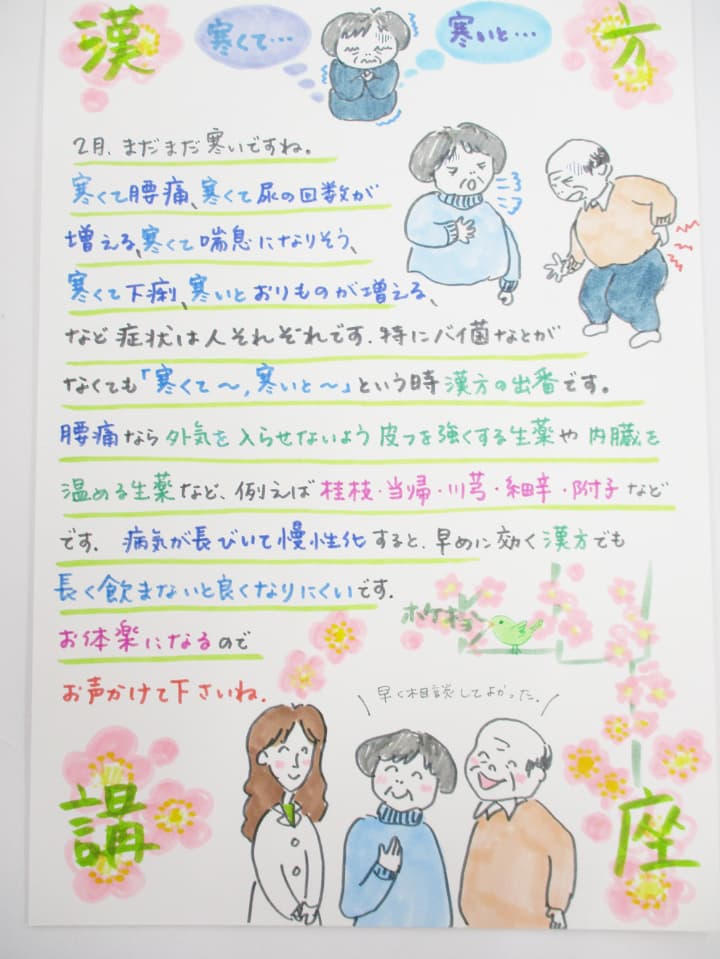 漢
方
寒くて…
寒いと…
2月、まだまだ寒いですね。
寒くて腰痛、寒くて尿の回数が
増える、寒くて喘息になりそう、
寒くて下痢、寒いとおりものが増える、
など症状は人それぞれです。特にバイ菌などが
なくても「寒くて〜,寒いと〜」という時漢方の出番です。
腰痛なら外気を入らせないよう皮フを強くする生薬や内臓を
温める生薬など、例えば桂枝・当帰・川芎・細辛・附子など
です。病気が長びいて慢性化すると、早めに効く漢方でも
長く飲まないと良くなりにくいです.
ホケキョ
お体楽になるので
お声かけて下さいね.
早く相談してよかった.
講
座